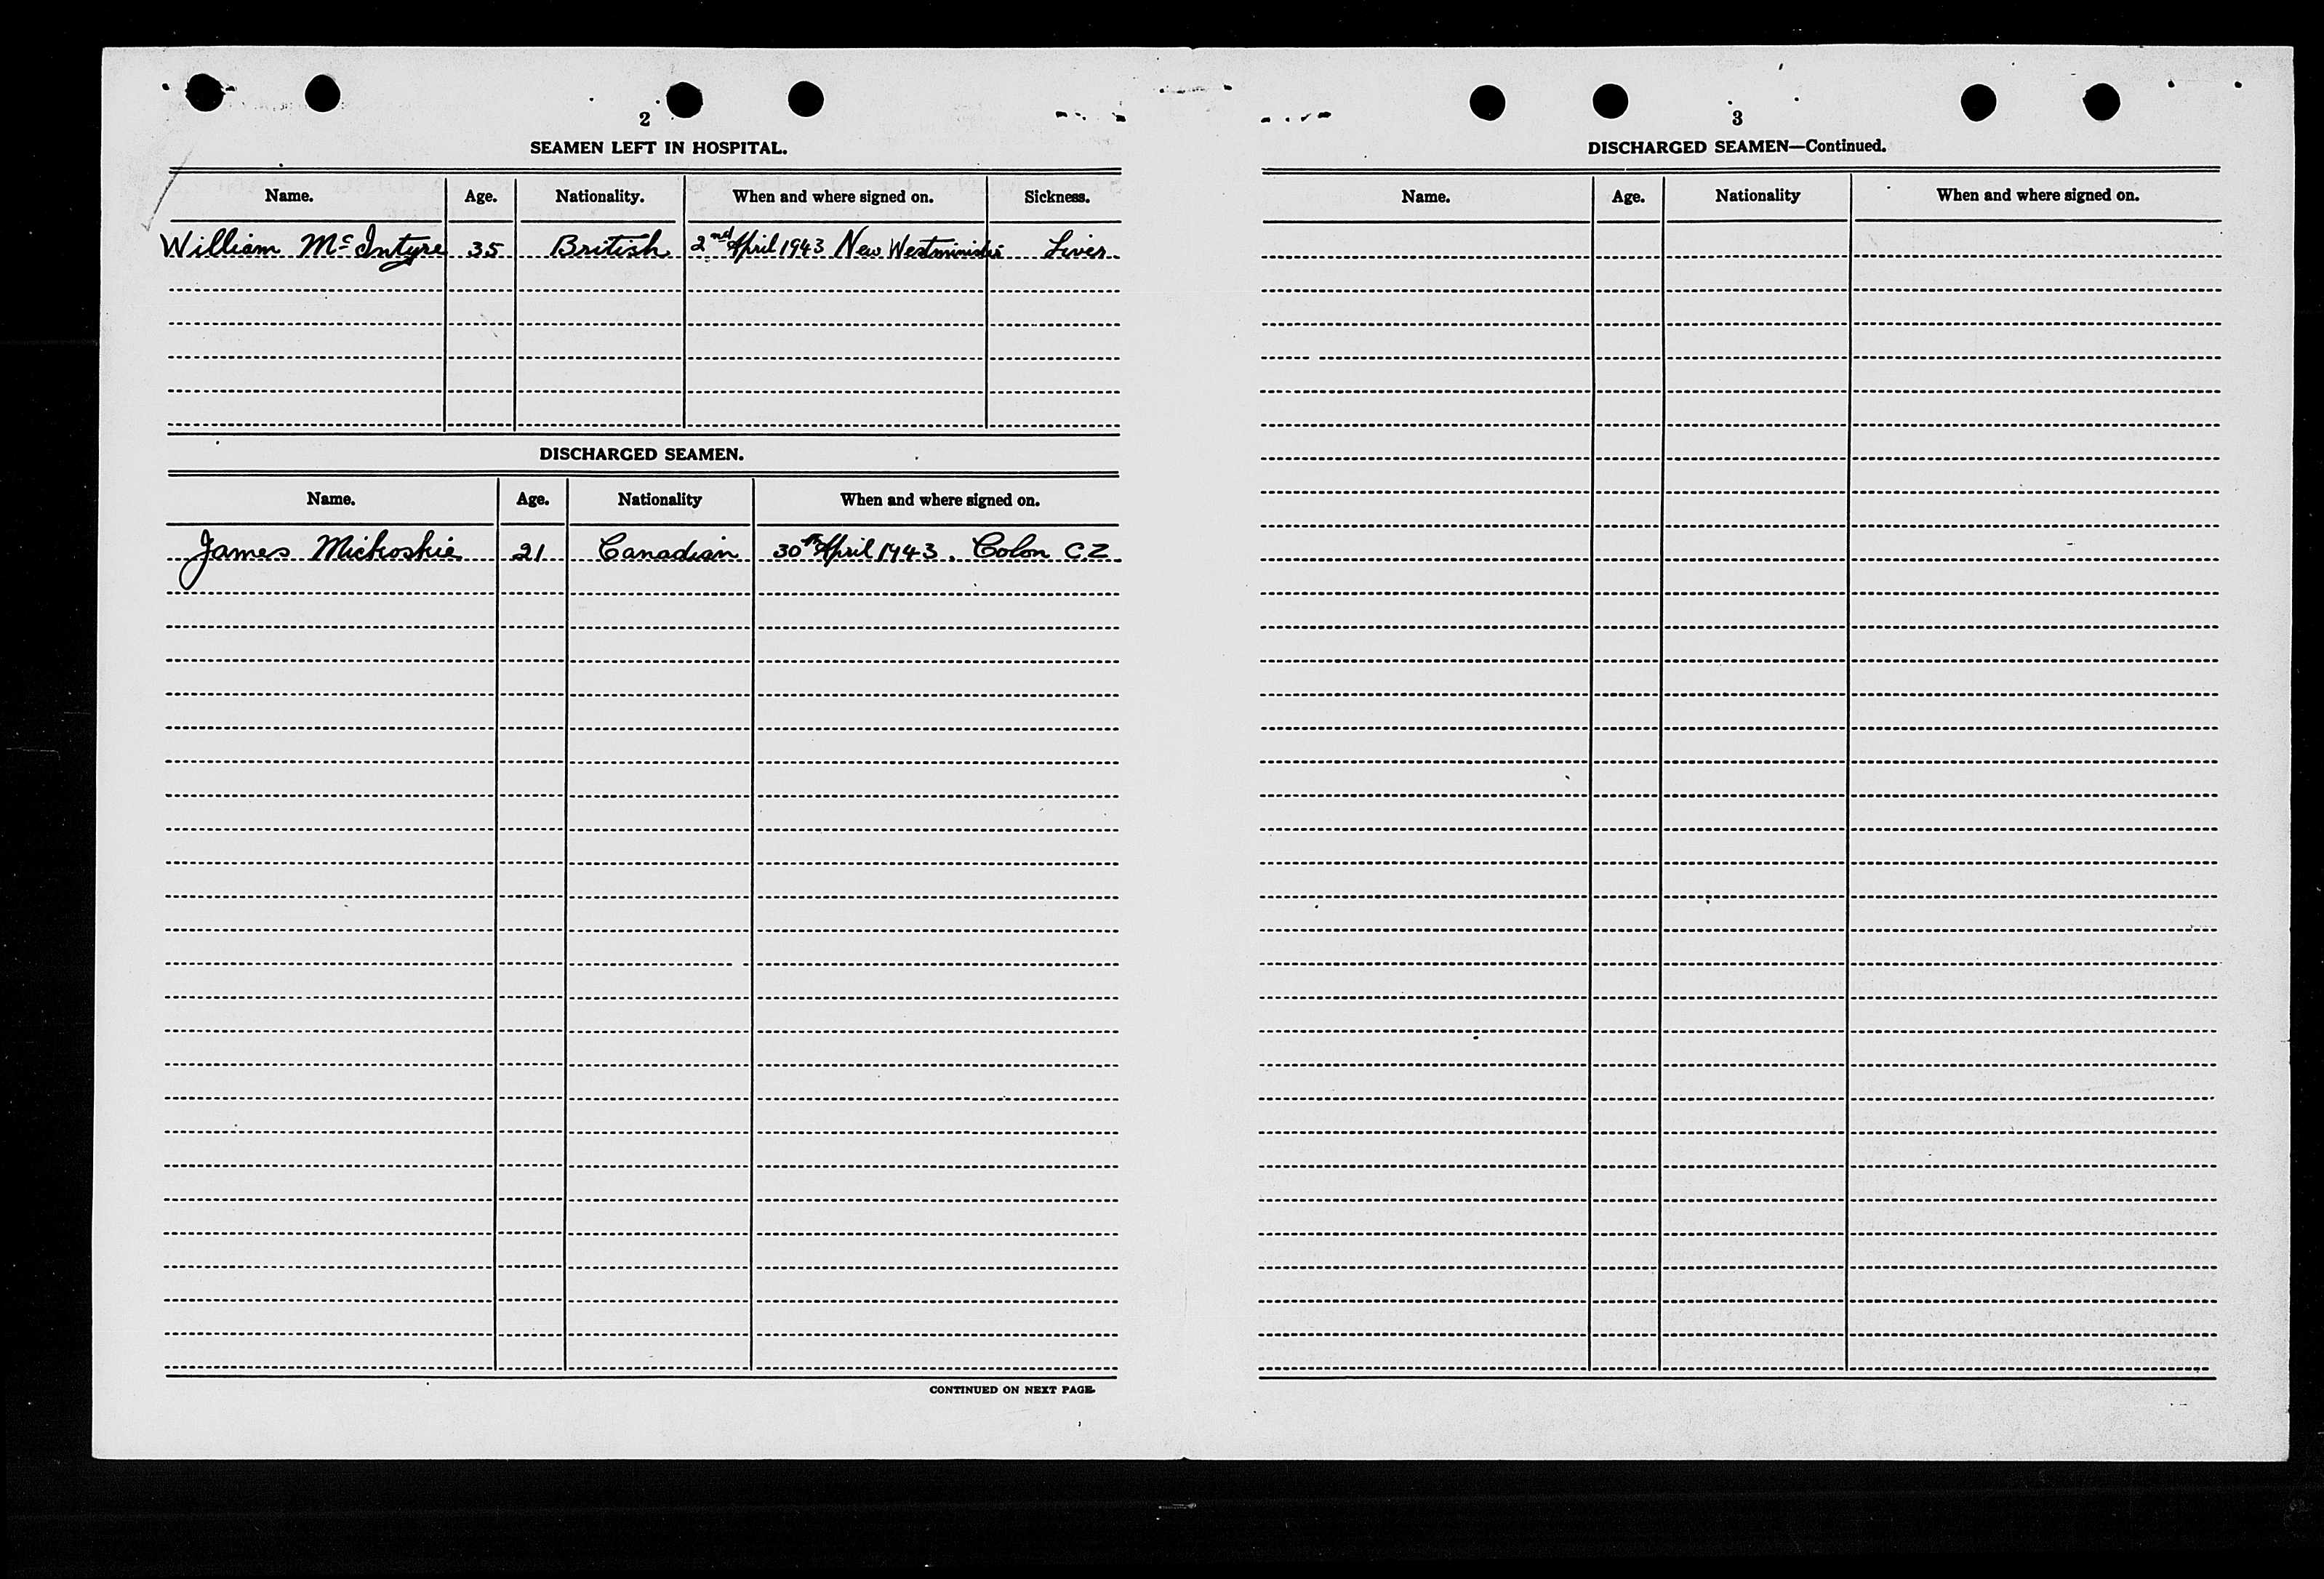 2
SEAMEN LEFT IN HOSPITAL.
Name. Age. Nationality. When and where signed on. Sickness.
William McIntyre 35 British 2nd April 1943 New Westminister Liver
DISCHARGED SEAMEN.
Name. Age. Nationality When and where signed on.
James Mickoskie 21 Canadian 30th April 1943. Colon C.Z.
CONTINUED ON NEXT PAGE.
3
DISCHARGED SEAMEN—Continued.
Name. Age. Nationality When and where signed on.